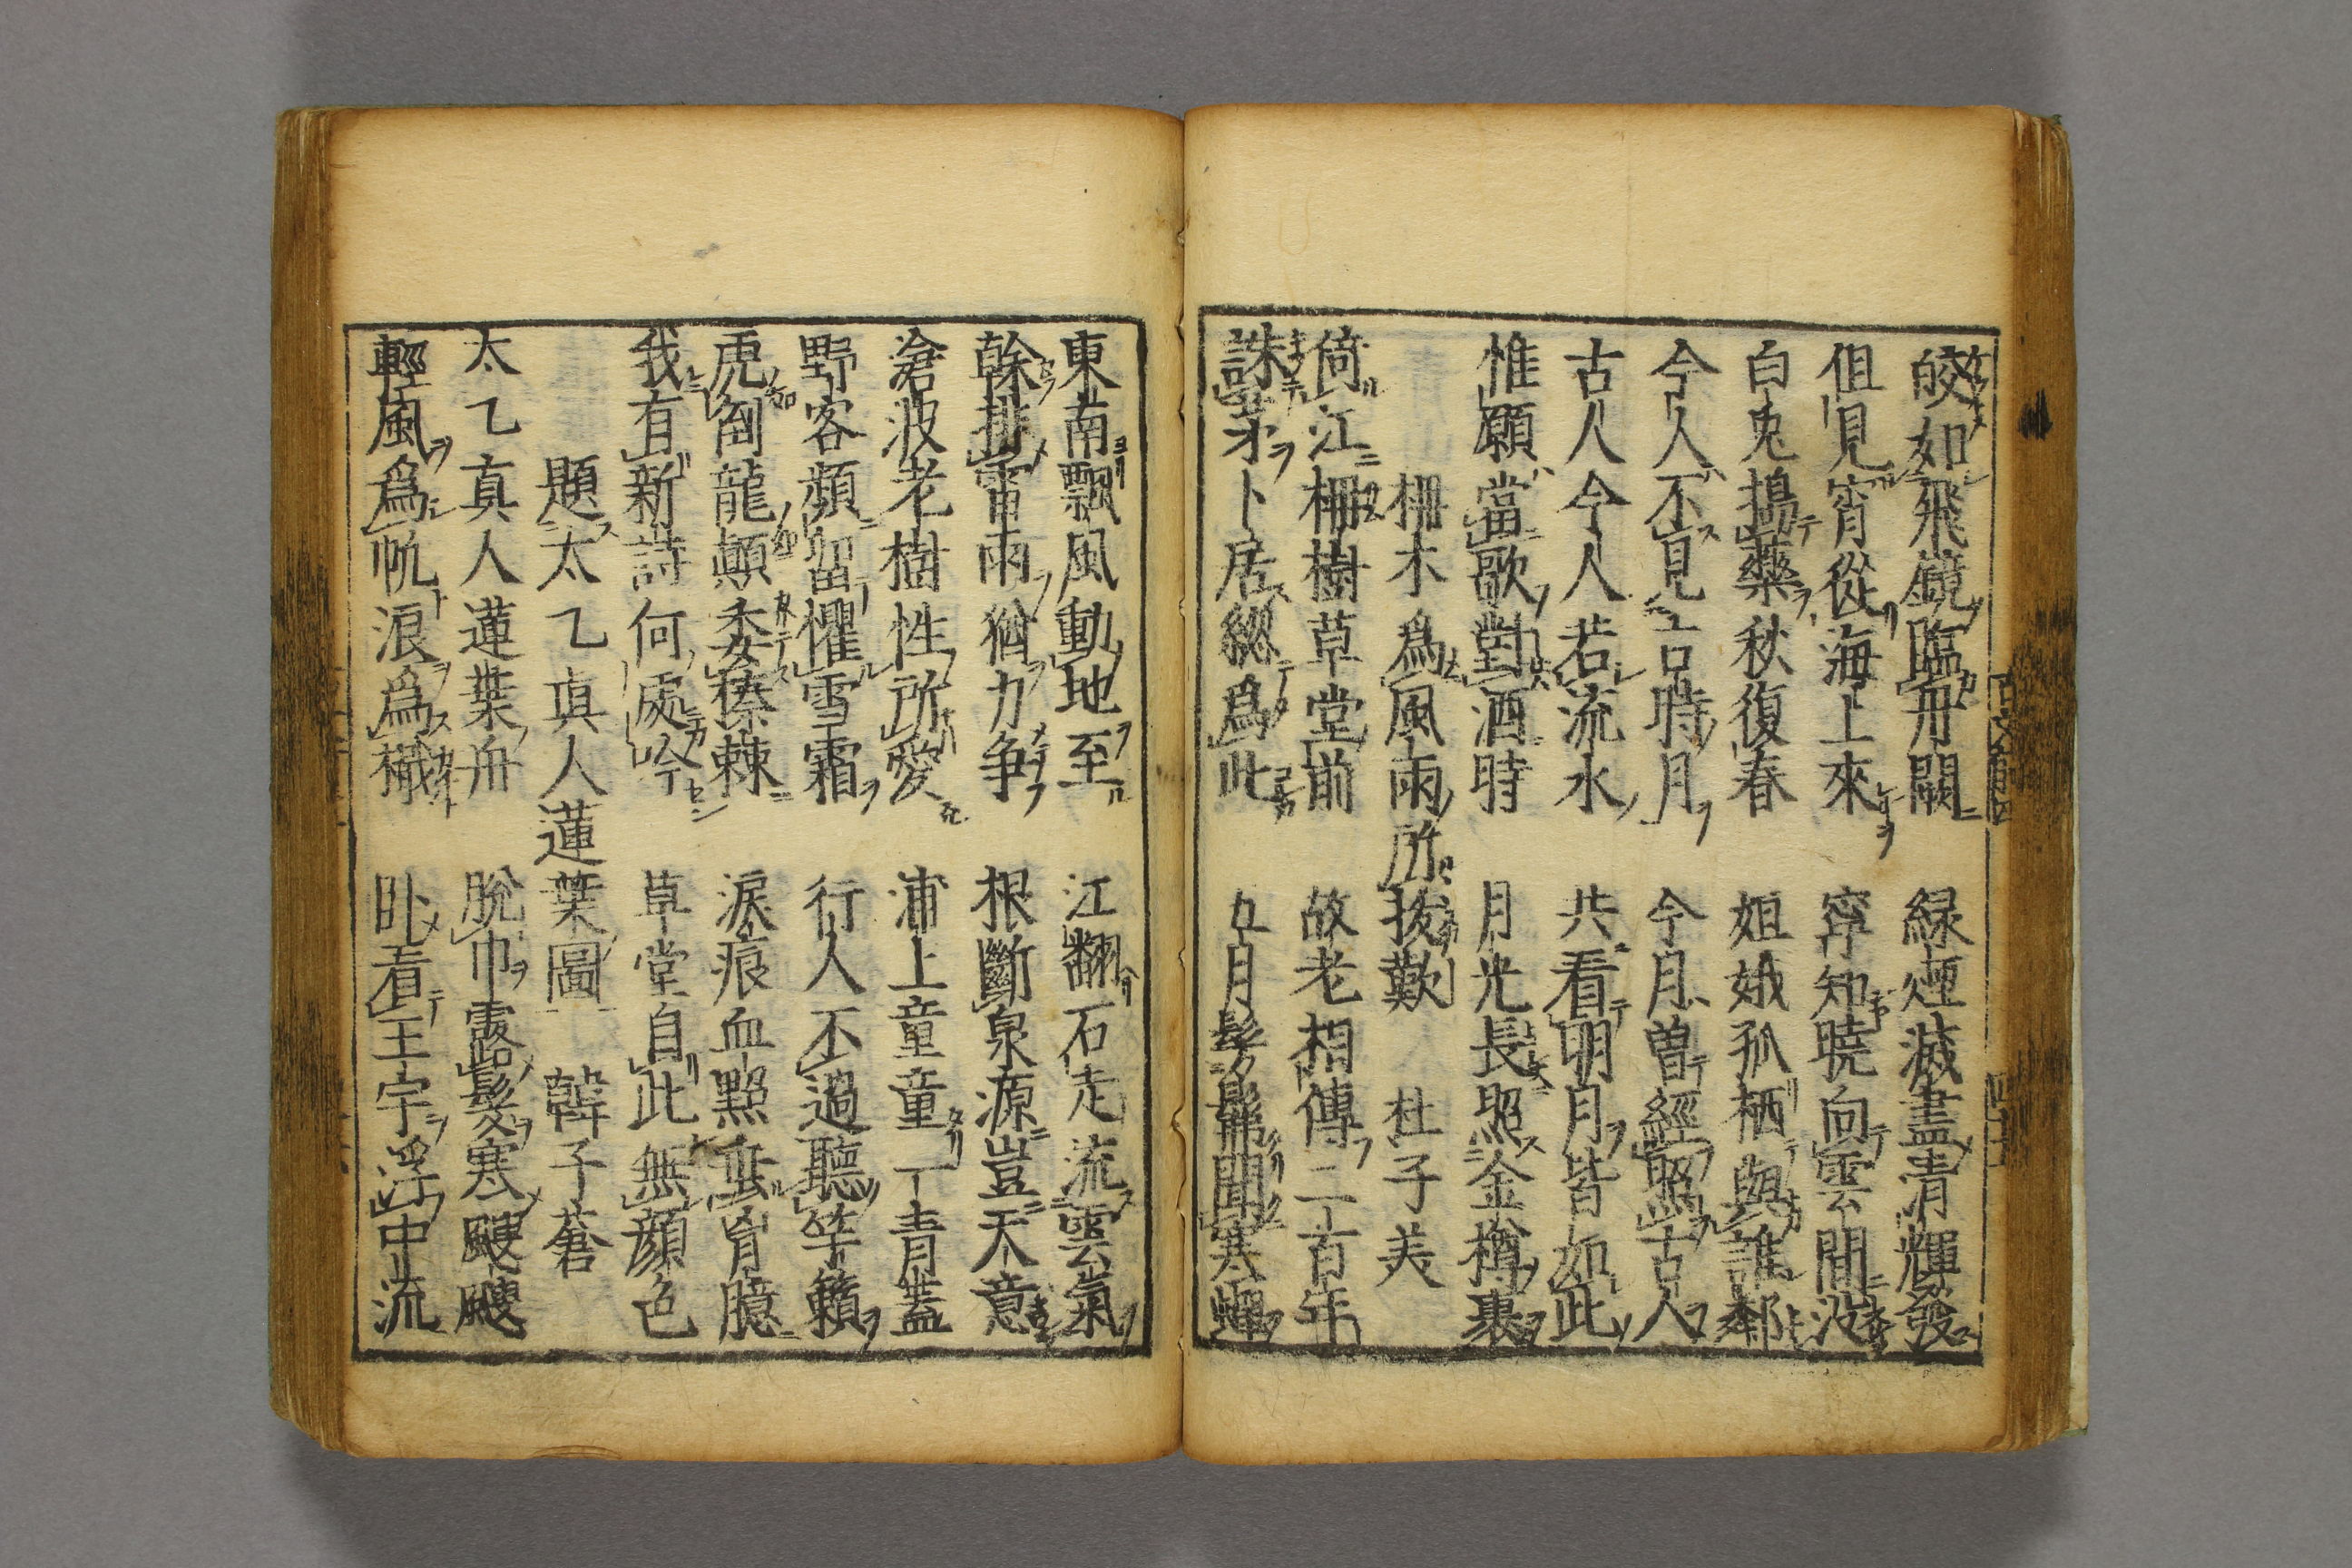 皎如飛鏡臨丹闕　緑煙滅盡清輝發
但見宵從海上來　寧知曉向雲間沒
白兎搗藥秋復春　姮娥孤栖與誰鄰
今人不見古時月　今月曽經照古人
古人今人若流水　共看明月皆如此
惟願當歌對酒時　月光長照金樽裏
柟木爲風雨所拔歎　杜子美
倚江柟樹草堂前　故老相傳二百年
誅茅卜居緫爲此　五月髣髴聞寒蟬
東南飄風動地至　江翻石走流雲氣
幹排雷雨猶力争　根斷泉源豈天意
滄波老樹性所愛　浦上童童一青蓋
野客頻留懼雪霜　行人不過聽竽籟
虎倒龍顛委榛棘　淚痕血點垂胷臆
我有新詩何處吟　草堂自此無顔色
題太乙真人蓮葉圖　韓子蒼
太乙真人蓮葉舟　脫巾露髮寒颼颼
輕風爲帆浪爲檝　卧看玉宇浮中流